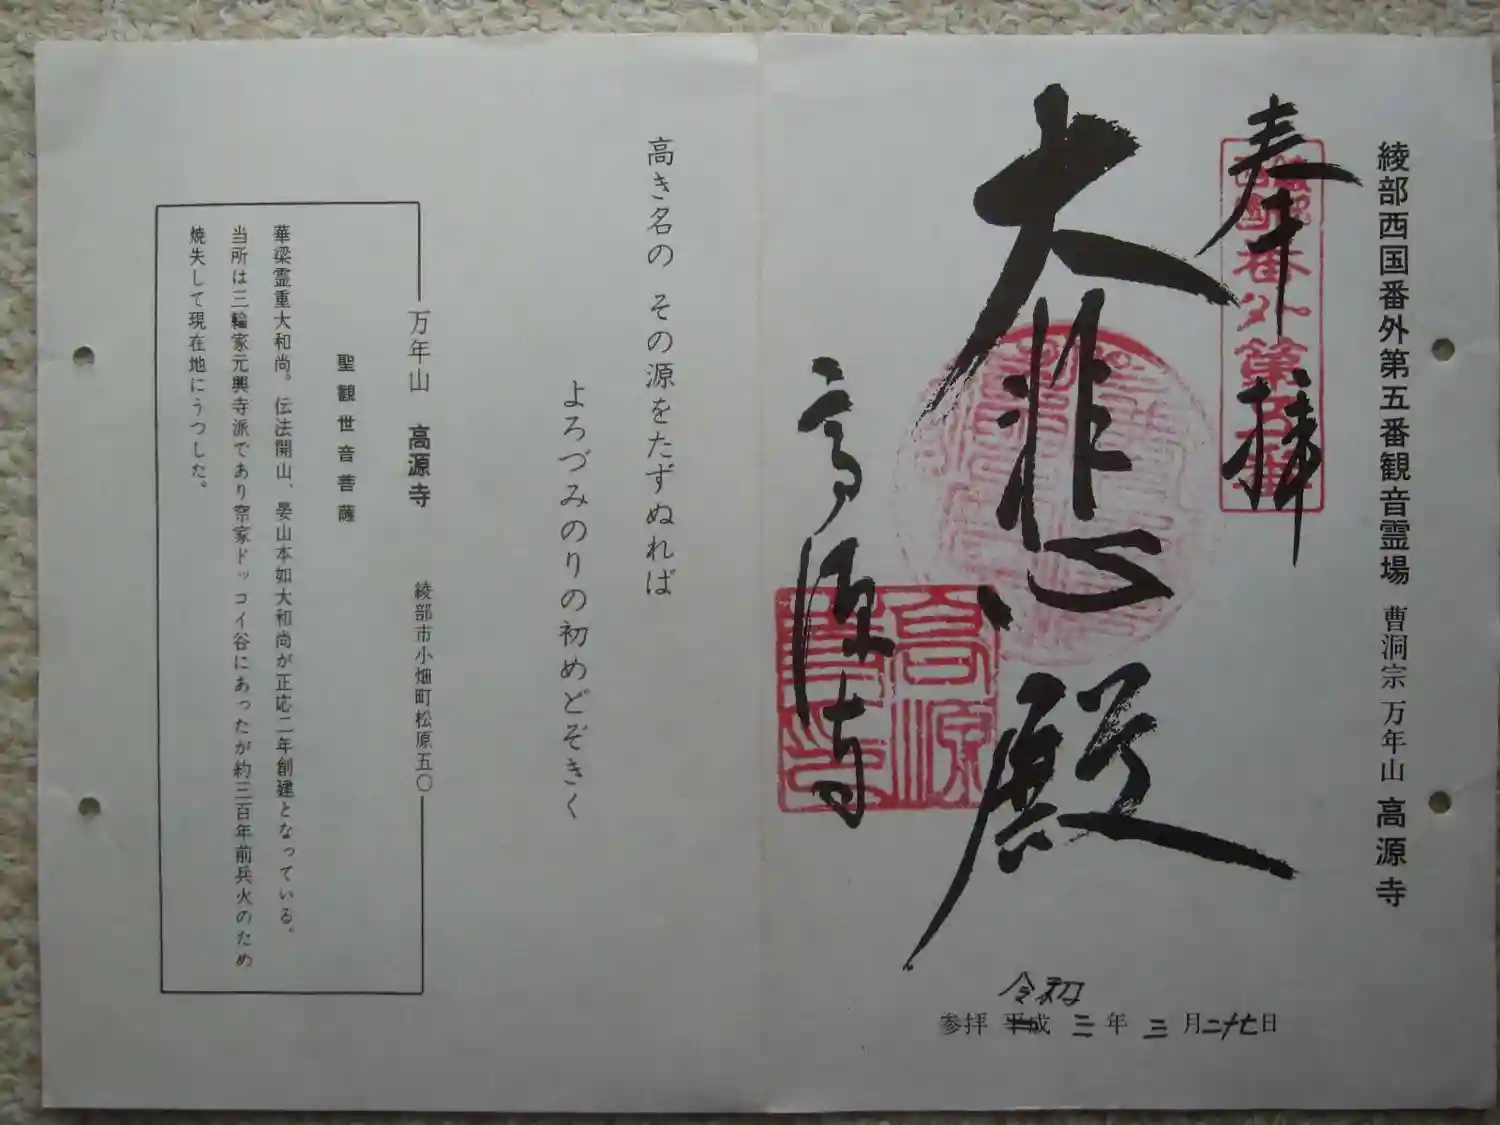 綾部西国番外第五番観音霊場 曹洞宗 万年山 高源寺
奉拝
大悲殿
高源寺
綾部西国番外第五番
高源
参拝 平成 三年 三月二十七日
令和
高き名の その源をたずぬれば
よろづみのりの初めどぞきく
万年山 高源寺 綾部市小畑町松原五〇
聖観世音菩薩
華梁霊重大和尚。伝法開山、晏山本如大和尚が正応二年創建となっている。
当所は三輪家元興寺派であり奈家ドッコイ谷にあったが約三百年前兵火のため
焼失して現在地にうつした。